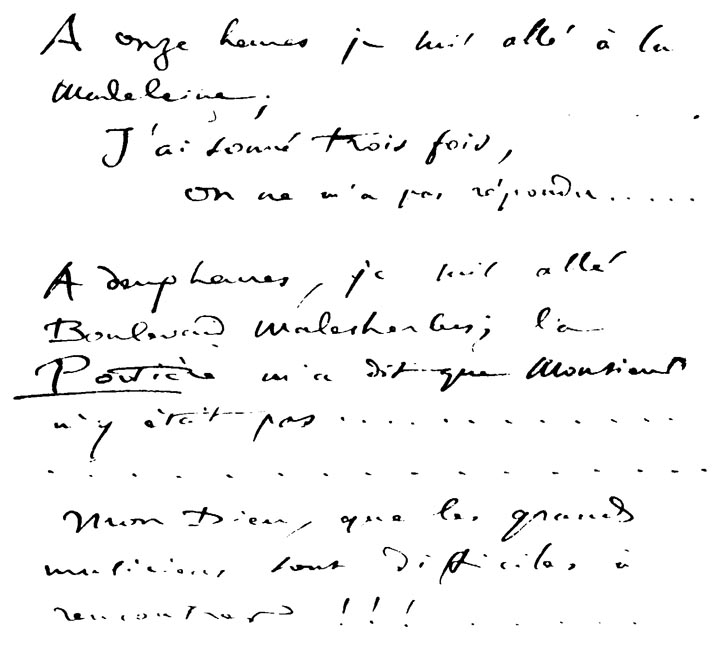 A onze heures je suis allé à la
Madeleine;
J'ai sonné trois fois,
on ne m'a pas répondu.....
A deux heures, je suis allé
Boulevard Malesherbes; la
Portière m'a dit que Monsieur
n'y était pas . . . . . . . . . . . . .
. . . . . . . . . . . . . . . . . .
Mon Dieu, que les grands
musiciens sont difficiles à
rencontrer !!! . . . . .